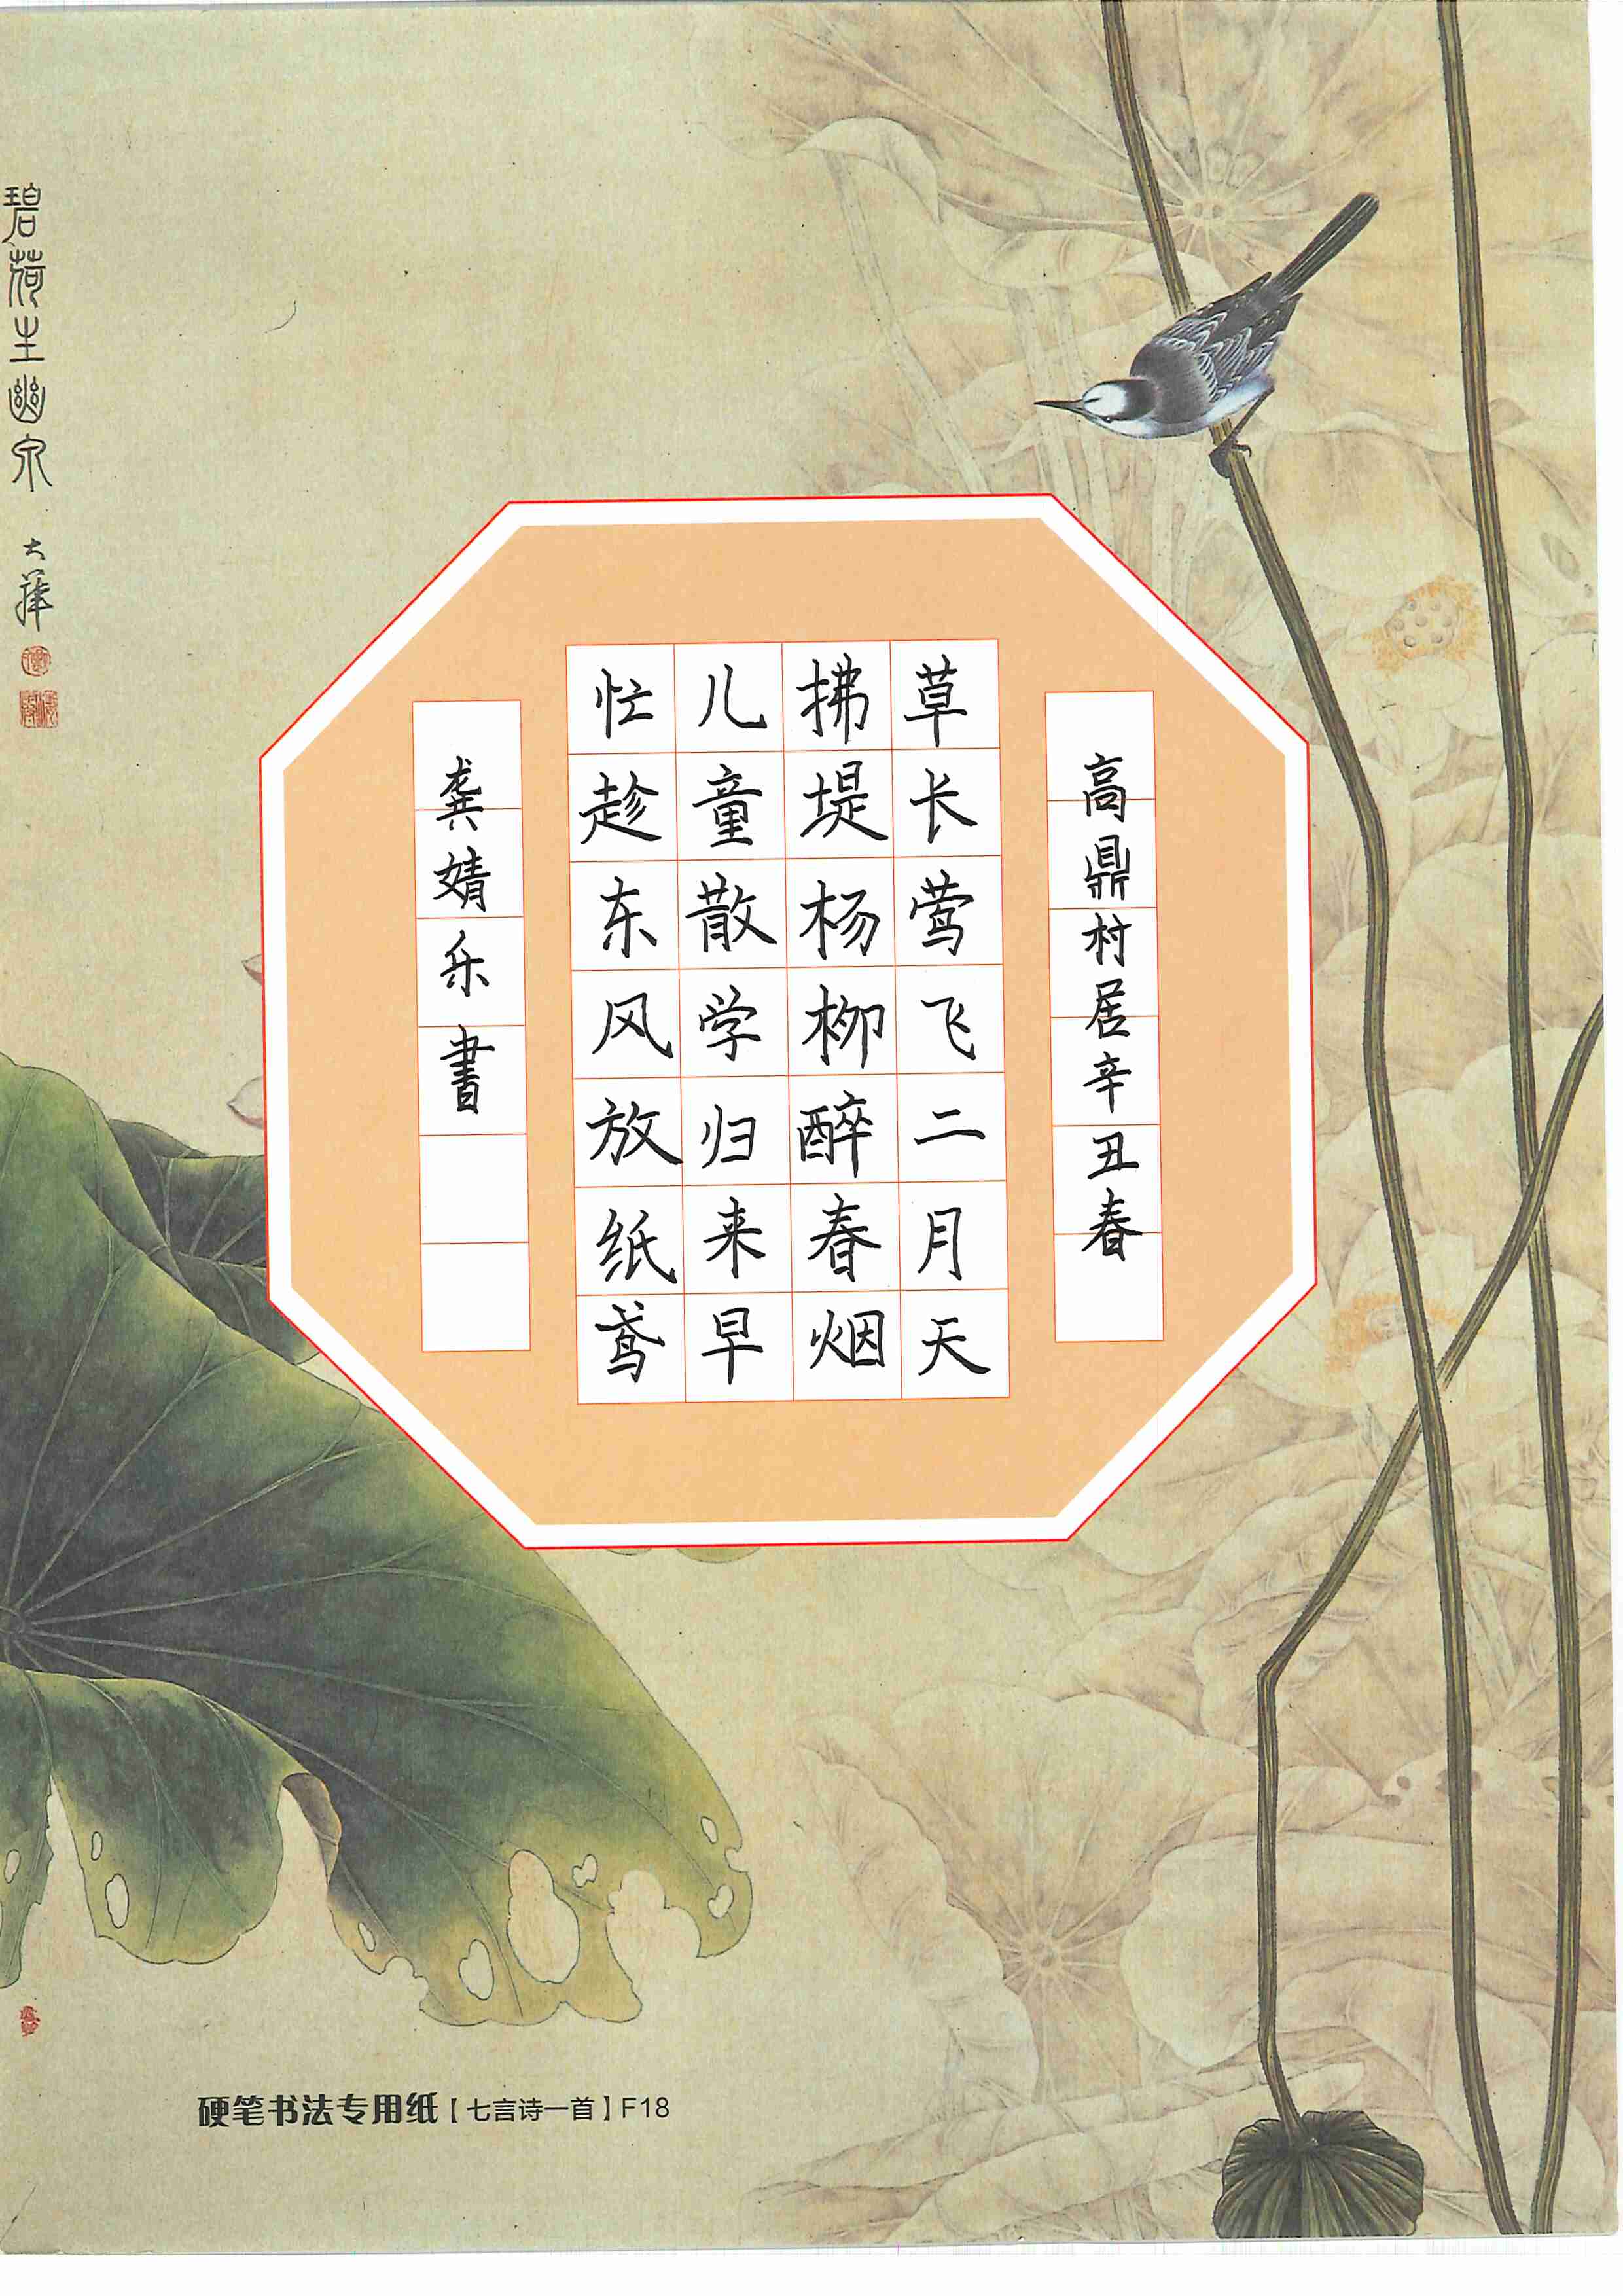 高鼎村居辛丑春
草长莺飞二月天
拂堤杨柳醉春烟
儿童散学归来早
忙趁东风放纸鸢
龚婧乐書
碧荷生幽泉
硬笔书法专用纸【七言诗一首】F18